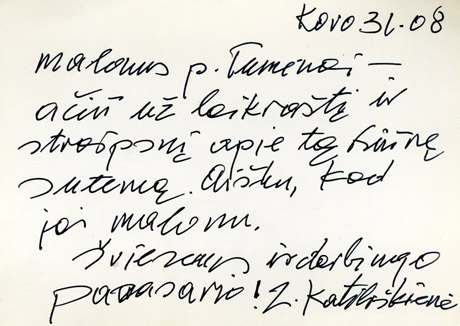 Kovo 31.08
malonus p. Tumėnai –
ačiū už laikraštį ir
straipsnį apie tą
sutemą. Aišku, kad
jai malonu.
Šviesaus ir darbingo
pavasario! Z. Katiliškienė